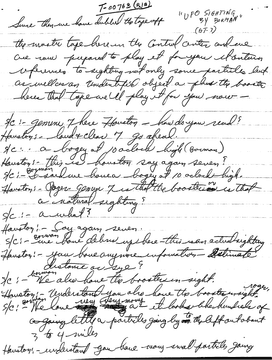 T-00763 (R/B)
"UFO SIGHTING
BY BORMAN"
(GT-7)
Since then we have dubbed the tape off
the master tape here in the Control Center and we
are now prepared to play it for you. It contains
references to sighting not only some particles but
as well as an object plus the booster
here that tape we'll play it for you now—
S/C:- Gemini 7 here Houston - how do you read?
Houston:- loud & clear 7 go ahead
S/C:- a bogey at 10 o'clock high (Borman)
Houston:- This is Houston say again seven?
S/C:- Said we have a bogey at 10 o'clock high.
Houston:- Roger Gemini 7 is that the booster or is that
a natural sighting?
S/C:- a what?
Houston:- Say again seven.
S/C:- we have debris up here - this is an actual sighting
Houston:- you have anymore information - Estimate
distance or size?
S/C:- We also have the booster in sight
Houston:- Understand you also have the booster in sight, roger.
S/C:- We have very very many - it looks like hundreds of
little particles going by to the left out about
3 to 4 miles
Houston:- understand you have many small particles going